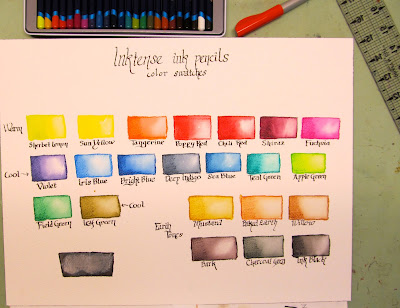 Inktense ink pencils
color swatches
Warm
Sherbet Lemon Sun Yellow Tangerine Poppy Red Chili Red Shiraz Fuchsia
Cool→
Violet Iris Blue Bright Blue Deep Indigo Sea Blue Teal Green Apple Green
Field Green Leaf Green ←Cool
Earth
Tones
Mustard Baked Earth Willow
Bark Charcoal Grey Ink Black